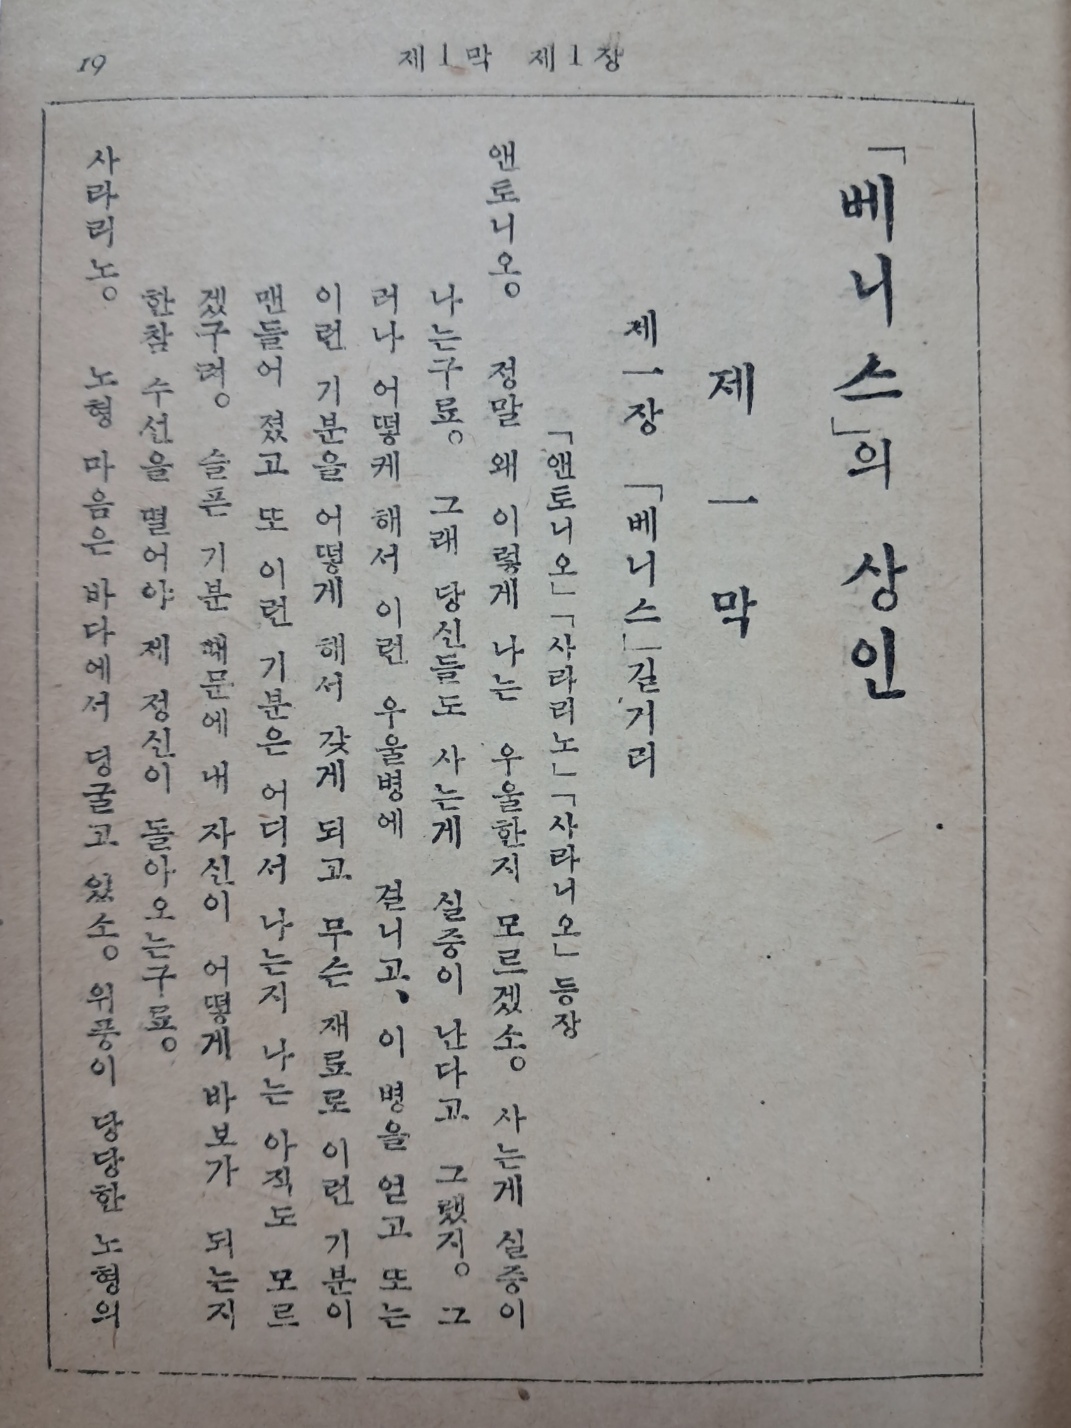 19
제1막 제1장
「베니스」의 상인
제 一 막
제一장 「베니스」길거리
「앤토니오」「사라리노」「사라니오」등장
앤토니오。 정말 왜 이렇게 나는 우울한지 모르겠소。 사는게 실증이
나는구료。 그래 당신들도 사는게 실증이 난다고 그랬지。 그
러나 어떻케 해서 이런 우울병에 걸니고、이 병을 얻고 또는
이런 기분을 어떻게 해서 갖게 되고 무슨 재료로 이런 기분이
맨들어 졌고 또 이런 기분은 어디서 나는지 나는 아직도 모르
겠구려。 슬픈 기분 때문에 내 자신이 어떻게 바보가 되는지
한참 수선을 떨어야 제 정신이 돌아오는구료。
사라리노。 노형 마음은 바다에서 딩굴고 있소。 위풍이 당당한 노형의